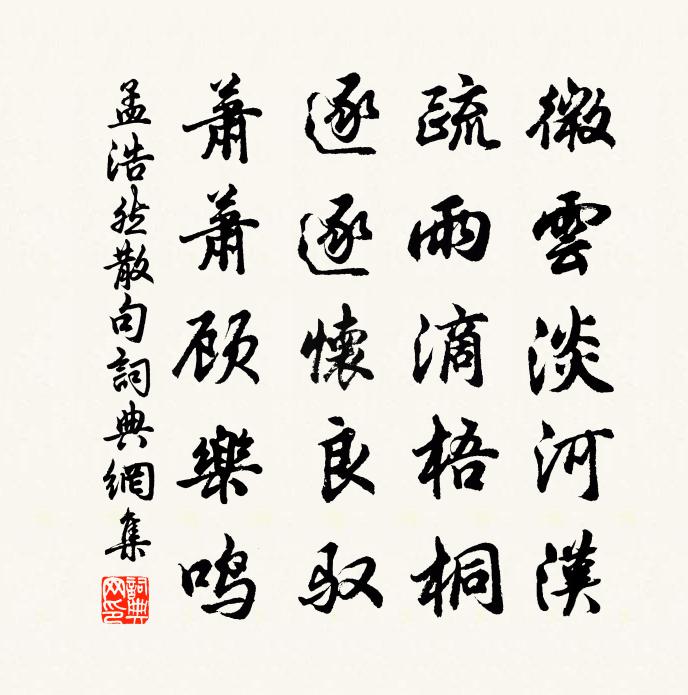 微雲淡河漢
疏雨滴梧桐
逐逐懷良驭
蕭蕭顾樂鸣
孟浩然散句詞典網集
詞典網印